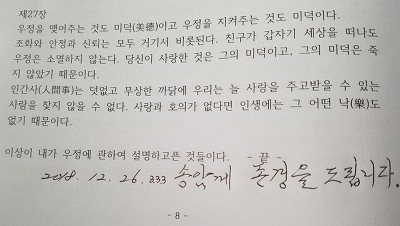 제27장
우정을 맺어주는 것도 미덕(美德)이고 우정을 지켜주는 것도 미덕이다.
조화와 안정과 신뢰는 모두 거기서 비롯된다. 친구가 갑자기 세상을 떠나도
우정은 소멸하지 않는다. 당신이 사랑한 것은 그의 미덕이고, 그의 미덕은 죽
지 않았기 때문이다.
인간사(人間事)는 덧없고 무상한 까닭에 우리는 늘 사랑을 주고받을 수 있는
사람을 찾지 않을 수 없다. 사랑과 호의가 없다면 인생에는 그 어떤 낙(樂)도
없기 때문이다.
이상이 내가 우정에 관하여 설명하고픈 것들이다. - 끝 -
2018. 12. 26. 333 께 존경을 드립니다.
- 8 -